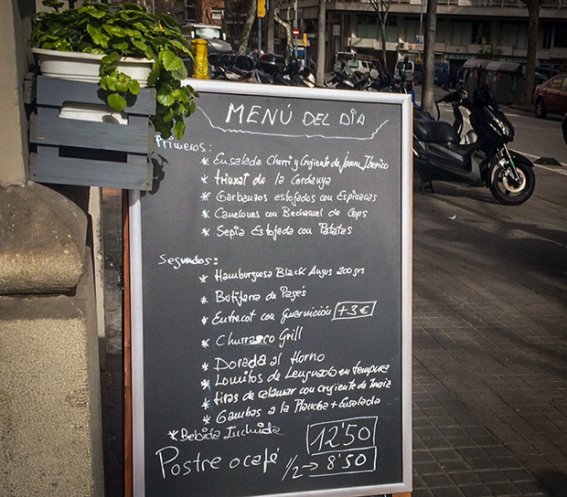 MENÚ DEL DÍA
Primeros:
* Ensalada Cherri y Crujiente de Jamon Iberico
* trinxat de la Cerdanya
* Garbanzos estofados con Espinacas
* Canelones con Bechamel de Ceps
* Sepia Estofada con Patatas
Segundos:
* Hamburguesa Black Angus 200 grs
* Botifarra de Pagés
* Entrecot con guarnición +3€
* Churrasco Grill
* Dorada al Horno
* Lomitos de Lenguado en tempura
* tiras de calamar con crujiente de Maiz
* Gambas a la Plancha + Ensalada
* Bebida Incluida
12'50
Postre o café 1/2 → 8'50